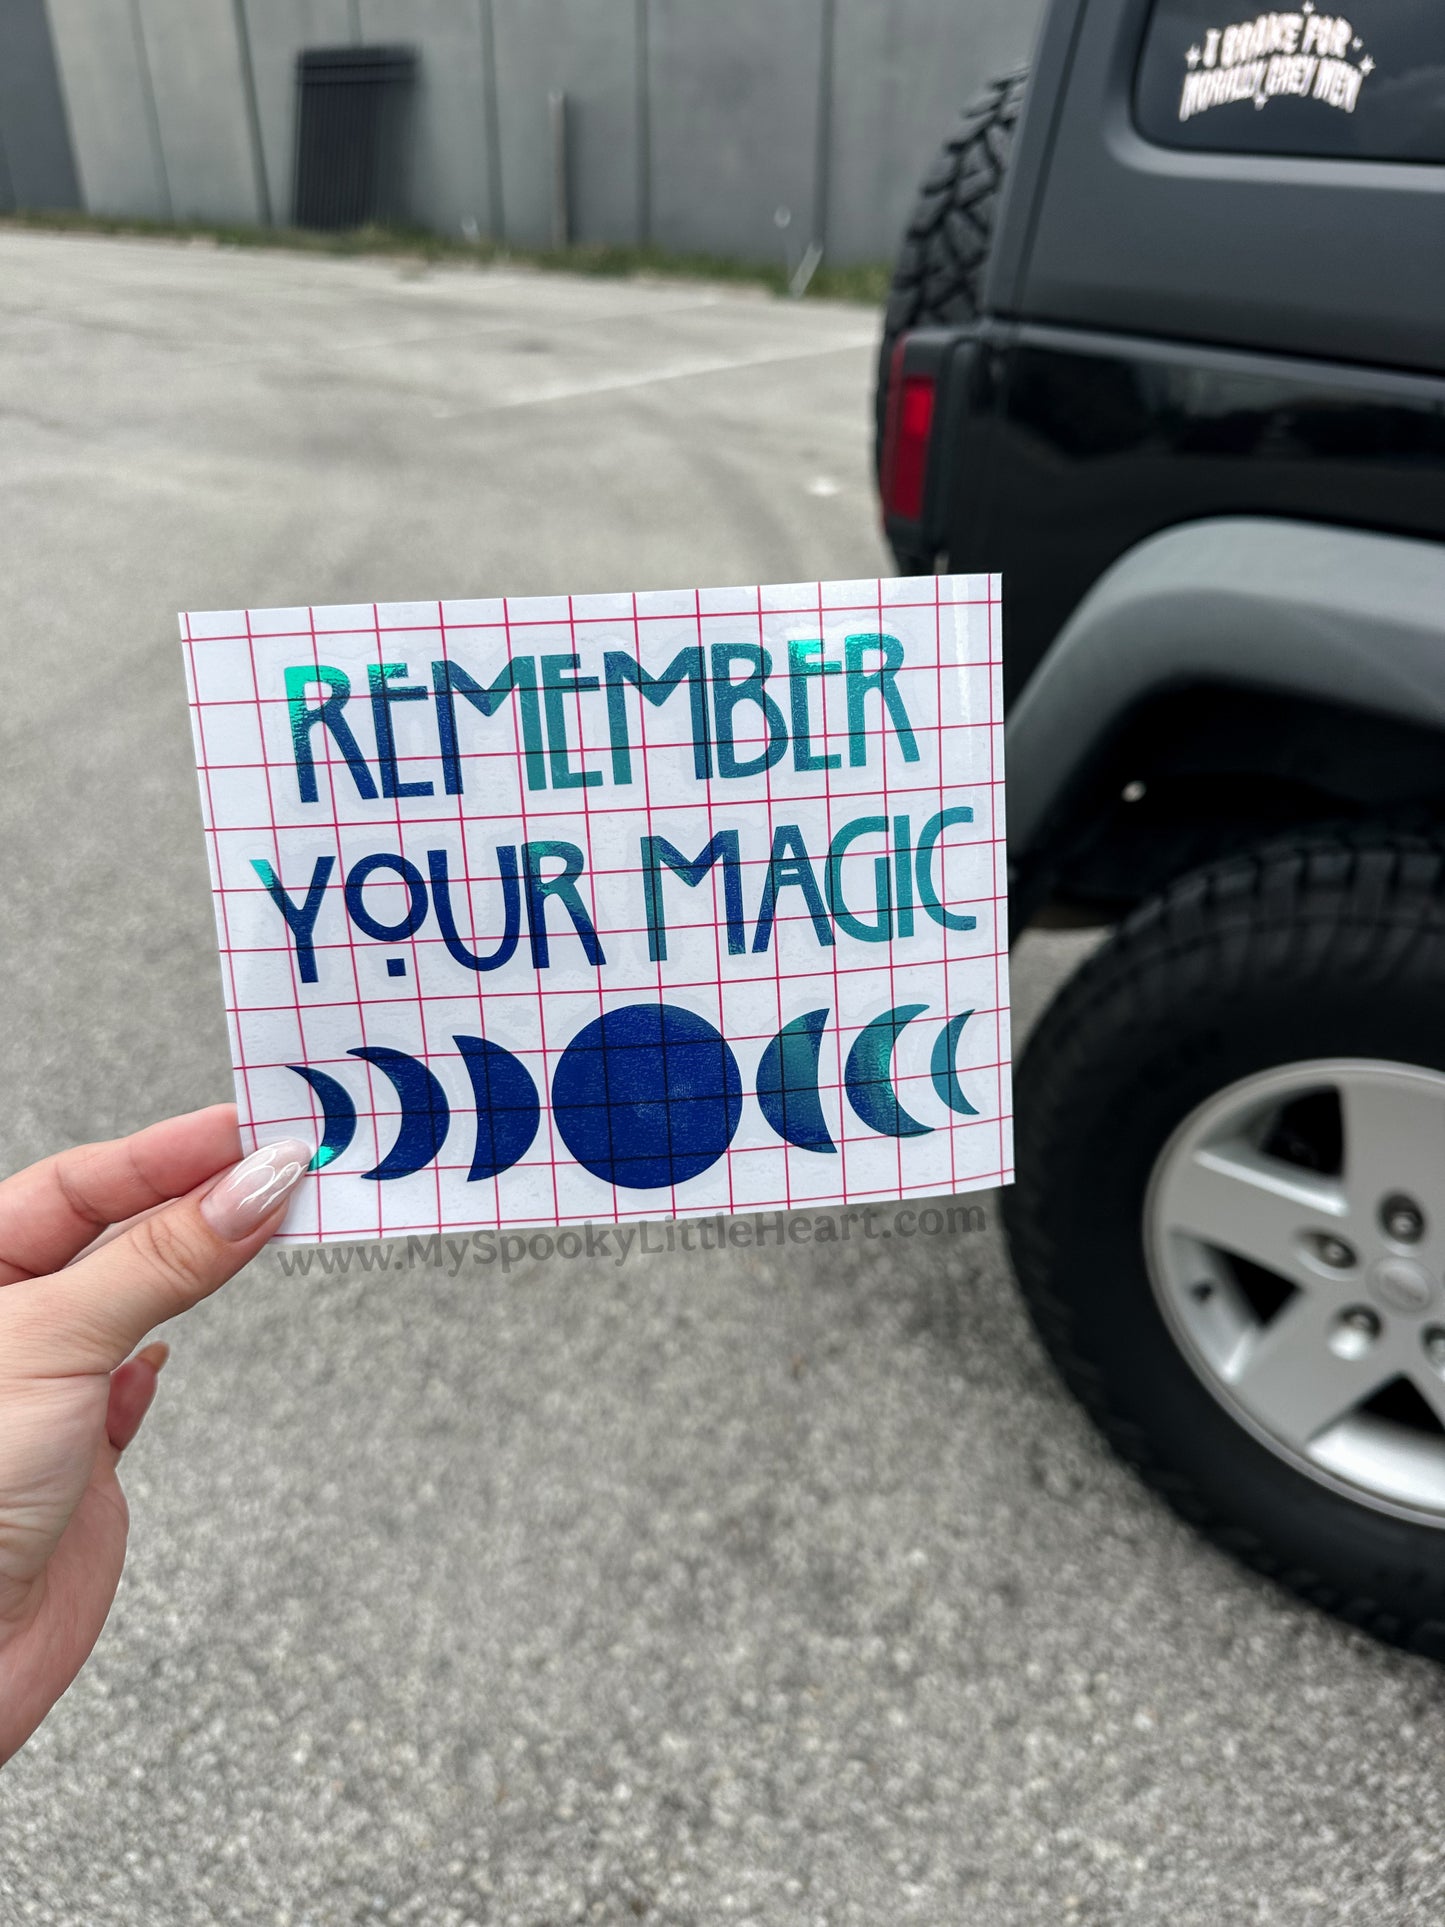 I BRAKE FOR
MORALLY GREY MEN
REMEMBER
YOUR MAGIC
www.MySpookyLittleHeart.com